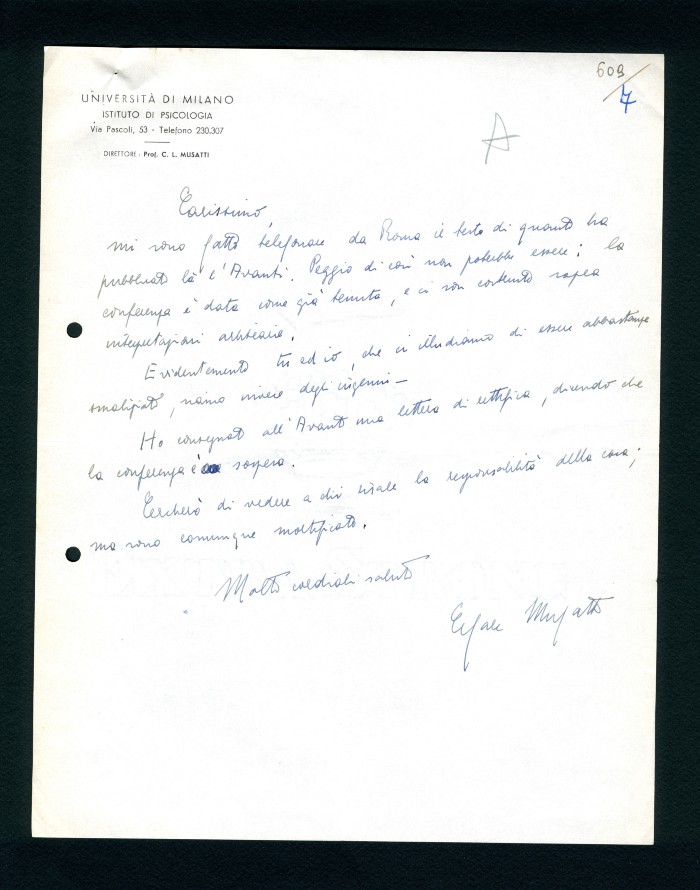 609
7
UNIVERSITÀ DI MILANO
ISTITUTO DI PSICOLOGIA
Via Pascoli, 53 - Telefono 230.307
DIRETTORE: Prof. C. L. MUSATTI
A
Carissimo,
mi sono fatto telefonare da Roma il testo di quanto ha
pubblicato là l'Avanti. Peggio di così non potrebbe essere; la
conferenza è data come già tenuta, e ci son contenute sopra
interpretazioni arbitrarie.
Evidentemente tu ed io, che ci illudiamo di essere abbastanza
smaliziati, siamo invece degli ingenui —
Ho consegnato all'Avanti una lettera di rettifica, dicendo che
la conferenza è sospesa.
Cercherò di vedere a chi risale la responsabilità della cosa;
ma sono comunque mortificato.
Molti cordiali saluti
Cesare Musatti